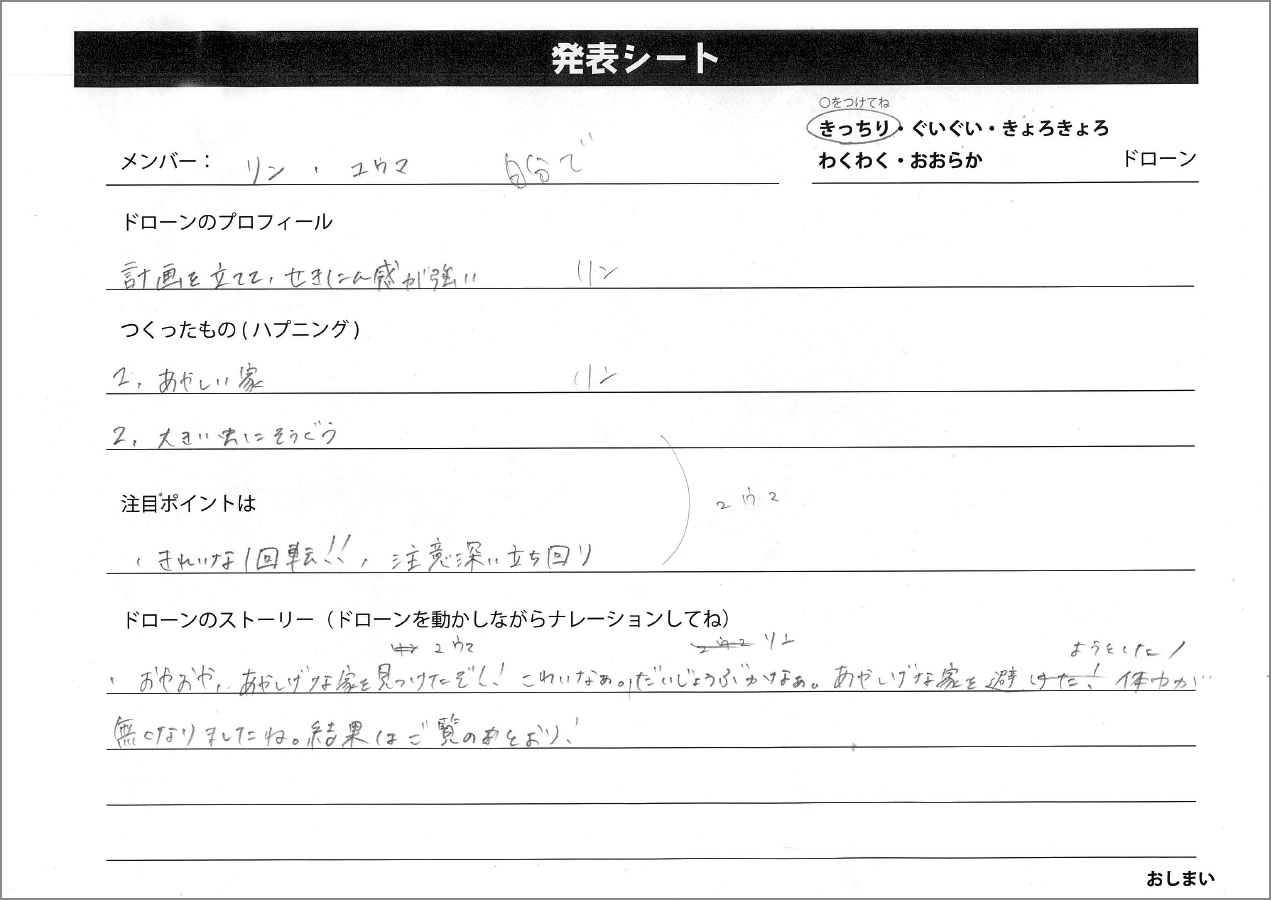 発表シート
○をつけてね
きっちり・ぐいぐい・きょろきょろ
メンバー： リン ・ ユウマ 自分で
わくわく・おおらか ドローン
ドローンのプロフィール
計画を立てて、せきにん感が強い リン
つくったもの ( ハプニング )
1. あやしい家 リン
2. 大きい虫にそうぐう
ユウマ
注目ポイントは
・きれいな1回転!!、注意深い立ち回り
ドローンのストーリー（ドローンを動かしながらナレーションしてね）
リン ユウマ ユウマ リン ようとした!
・おやおや、あやしげな家を見つけたぞ!! これいなぁ。だいじょうぶかなぁ。あやしげな家を避けた! 体力が
無くなりましたね。結果はご覧のあとおり!
おしまい